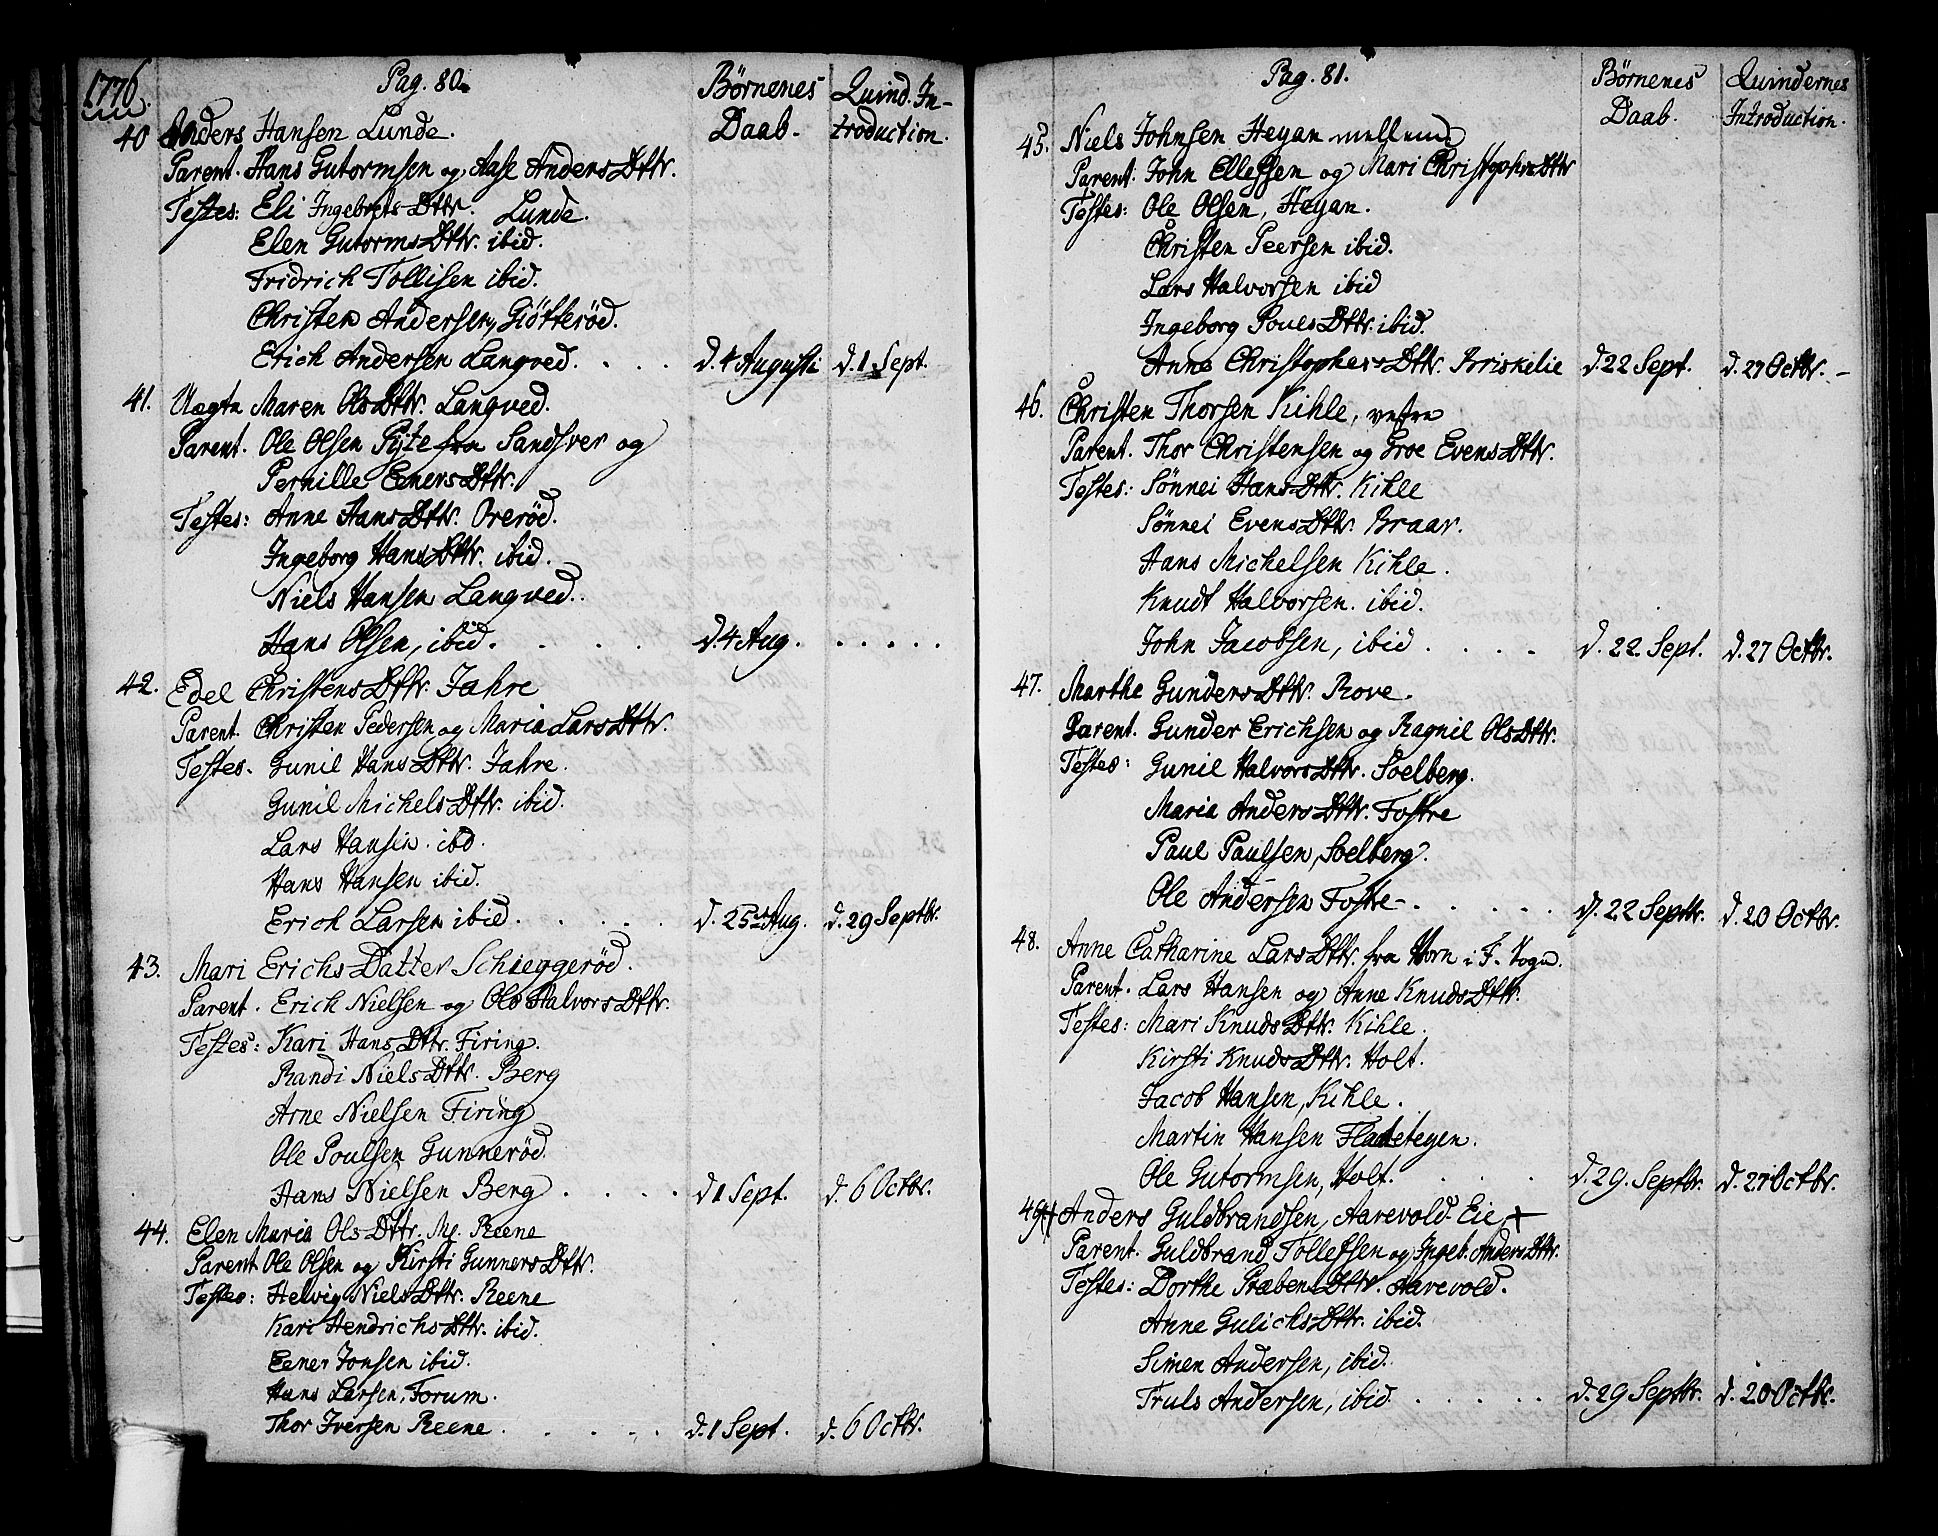 1776.
Pag. 80.
Børnenes Daab.
Quind. In-
troduction.
40 Anders Hansen Lunde.
Parent. Hans Gutormsen og Aase Anders Dttr.
Testes: Eli Ingebrets Dttr. Lunde.
Elen Gutorms Dttr. ibid.
Fridrich Tollisen ibid.
Christen Andersen, Giötteröd.
Erich Andersen Langved. . . . d. 4 Augusti d. 1 Sept.
41. Uægta Maren Ols Dttr. Langved.
Parent. Ole Olsen Ryte fra Sandsver og
Pernille Eeners Dttr.
Testes: Anne Hans Dttr. Oreröd.
Ingeborg Hans Dttr. ibid.
Niels Hansen Langved.
Hans Olsen, ibid. . . . d. 4 Aug. . . . . .
42. Edel Christens Dttr. Jahre
Parent. Christen Pedersen og Maria Lars Dttr.
Testes. Gunil Hans Dttr. Jahre.
Gunil Michels Dttr. ibid.
Lars Hansen. ibd.
Hans Hansen ibid.
Erich Larsen ibid. . . . d. 25 Aug. d. 29 Septbr.
43. Mari Erichs Datter Schieggeröd.
Parent. Erich Nielsen og Ols Halvors Dttr.
Testes: Kari Hans Dttr. Firing.
Randi Niels Dttr. Berg
Arne Nielsen Firing
Ole Poulsen Gunneröd.
Hans Nielsen Berg . . . . d 1 Sept. d. 6 Octbr.
44. Elen Maria Ols Dttr. M. Reene
Parent Ole Olsen og Kirsti Gunners Dttr.
Testes: Helvig Niels Dttr. Reene
Kari Hendrichs Dttr. ibid.
Eener Jonsen ibid.
Hans Larsen, Forum.
Thor Iversen Reene . . . . . d. 1 Sept. d. 6 Octbr.
Pag. 81.
Børnenes
Daab.
Quindernes
Introduction.
45. Niels Johnsen Heyan mellem
Parent. John Ellefsen og Mari Christopher Dttr
Testes: Ole Olsen, Heyan.
Christen Peersen ibid.
Lars Halvorsen ibid
Ingeborg Poues Dttr. ibid.
Anne Christophers Dttr. Briskelie d. 22 Sept. d. 27 Octbr. -
46. Christen Thorsen Kihle, vestre
Parent. Thor Christensen og Groe Evens Dttr.
Testes: Sönnei Hans Dttr. Kihle
Sönnei Evens Dttr. Braar.
Hans Michelsen Kihle.
Knudt Halvorsen. ibid.
John Jacobsen, ibid . . . . d. 22. Sept. d. 27 Octbr.
47. Marthe Gunders Dttr. Rove.
Parent. Gunder Erichsen og Ragnil Ols Dttr.
Testes: Gunil Halvors Dttr. Soelberg.
Maria Anders Dttr. Fostre
Paul Paulsen, Soelberg.
Ole Andersen Fostre-. . . . . d. 22 Septbr. d. 20 Octbr.
48. Anne Catharine Lars Dttr. fra Horn i F. Sogn.
Parent. Lars Hansen og Anne Knuds Dttr.
Testes: Mari Knuds Dttr. Kihle.
Kirsti Knuds Dttr. Holt.
Jacob Hansen, Kihle.
Martin Hansen Fladetegen.
Ole Gutormsen, Holt. . . . d. 29. Septbr. d. 27 Octbr.
49. Anders Guldbrandsen, Aarevold-Eie +
Parent. Guldbrand Tollefsen og Ingeb. Anders Dttr.
Testes: Dorthe Stæbens Dttr. Aarevold.
Anne Gulichs Dttr. ibid.
Simen Andersen, ibid.
Truls Andersen, ibid. . . . . . d. 29 Septbr. d. 20 Octbr.